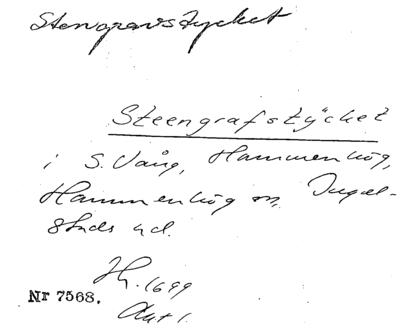 Stengravstycket
Steengrafstÿcket
i S. Vång, Hammenhög,
Hammenhög sn, Ingel-
stads hd.
Hh. 1699
Nr 7568.
Akt 1.